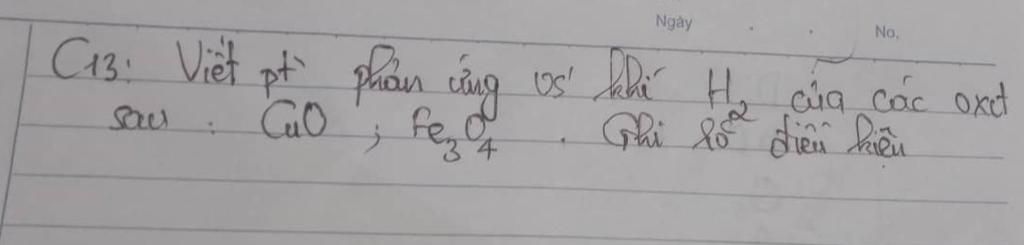 Ngày No.
C13: Viết pt phản ứng vs khí H₂ của các oxit
sau : CuO ; Fe₃O₄ . Ghi rõ điều kiện